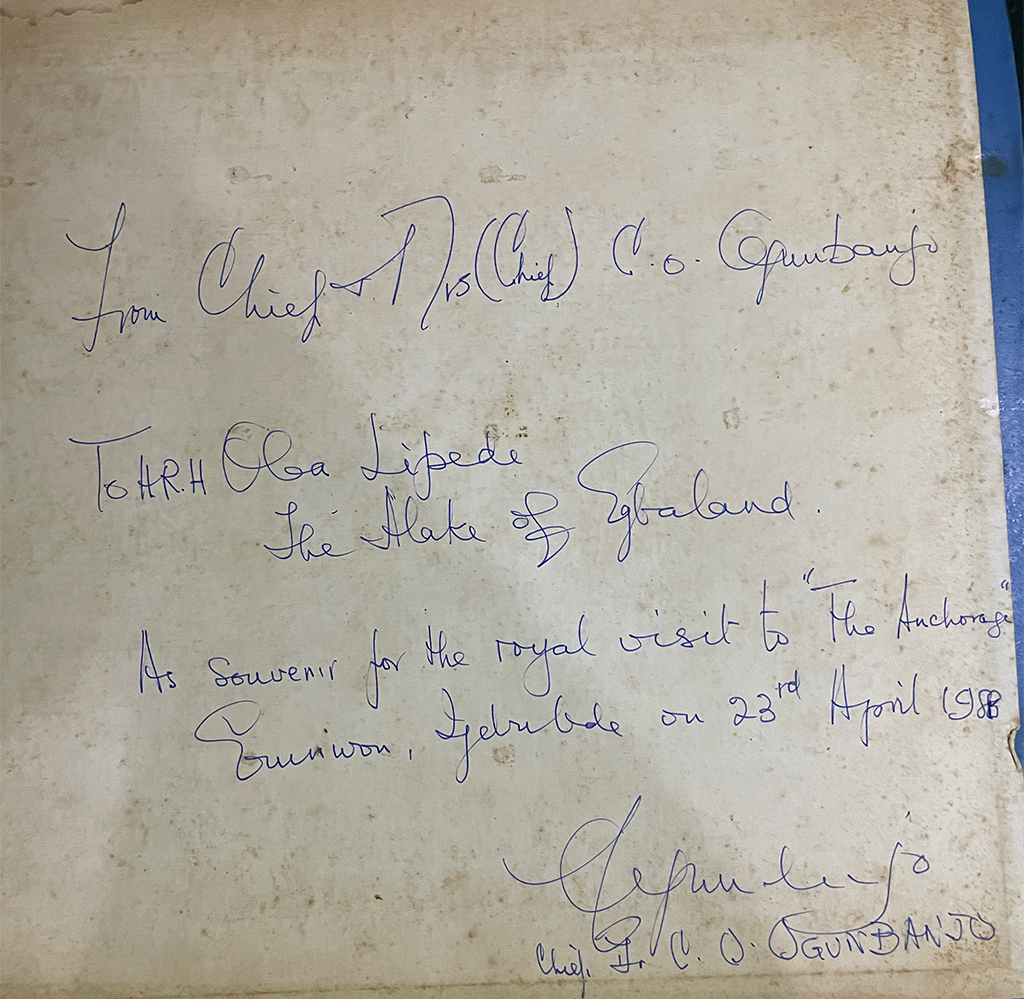 From Chief & Mrs (Chief) C. O. Ogunbanjo
To HRH Oba Lipede
The Alake of Egbaland.
As Souvenir for the royal visit to "The Anchorage"
Erunwon, Ijebu Ode on 23rd April 1988
Chief. Dr. C. O. OGUNBANJO